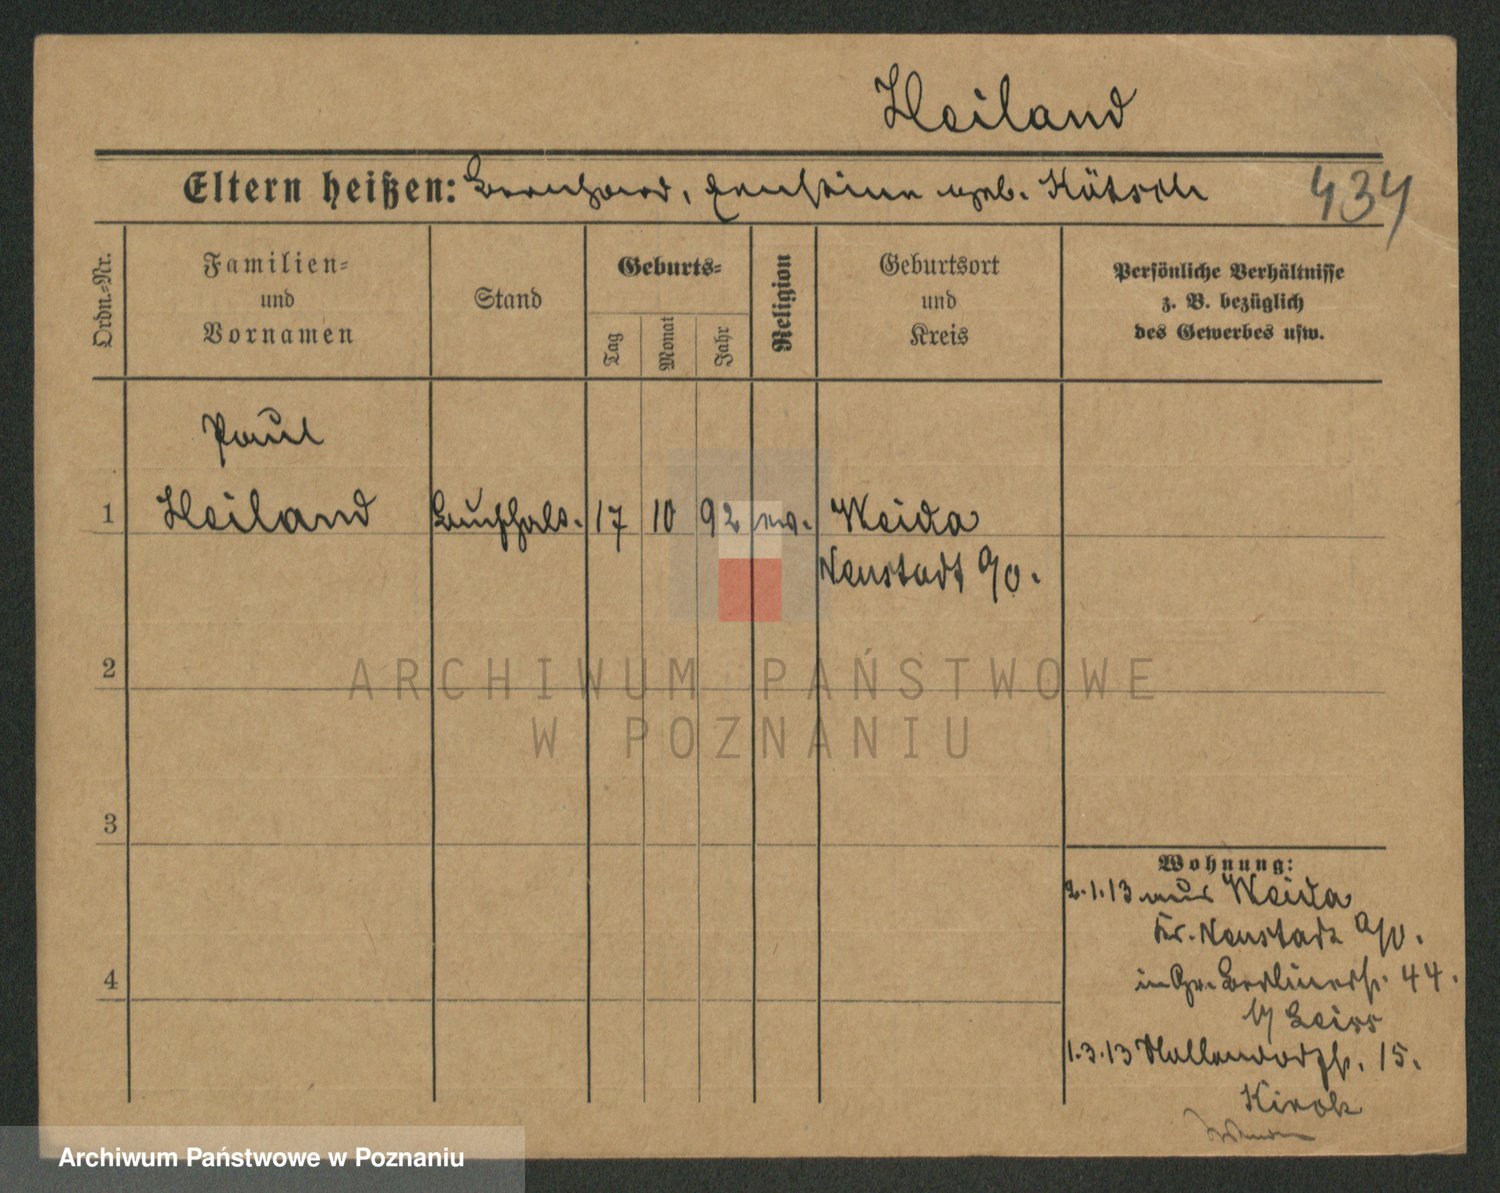 Heiland
Eltern heißen: Bernhard, Ernstine geb. Kötsch
434
Ordn.-Nr.
Familien-
und
Vornamen
Stand
Geburts-
Tag
Monat
Jahr
Religion
Geburtsort
und
Kreis
Persönliche Verhältnisse
z. B. bezüglich
des Gewerbes usw.
Paul
1 Heiland Buchhalt. 17 10 92 ev. Weida
Neustadt a/O.
2
3
4
Wohnung:
2.1.13 aus Weida
Kr. Neustadt a/O.
in Gr. Berlinerstr. 44.
b/
1.3.13 str. 15.
ARCHIWUM PAŃSTWOWE
W POZNANIU
Archiwum Państwowe w Poznaniu